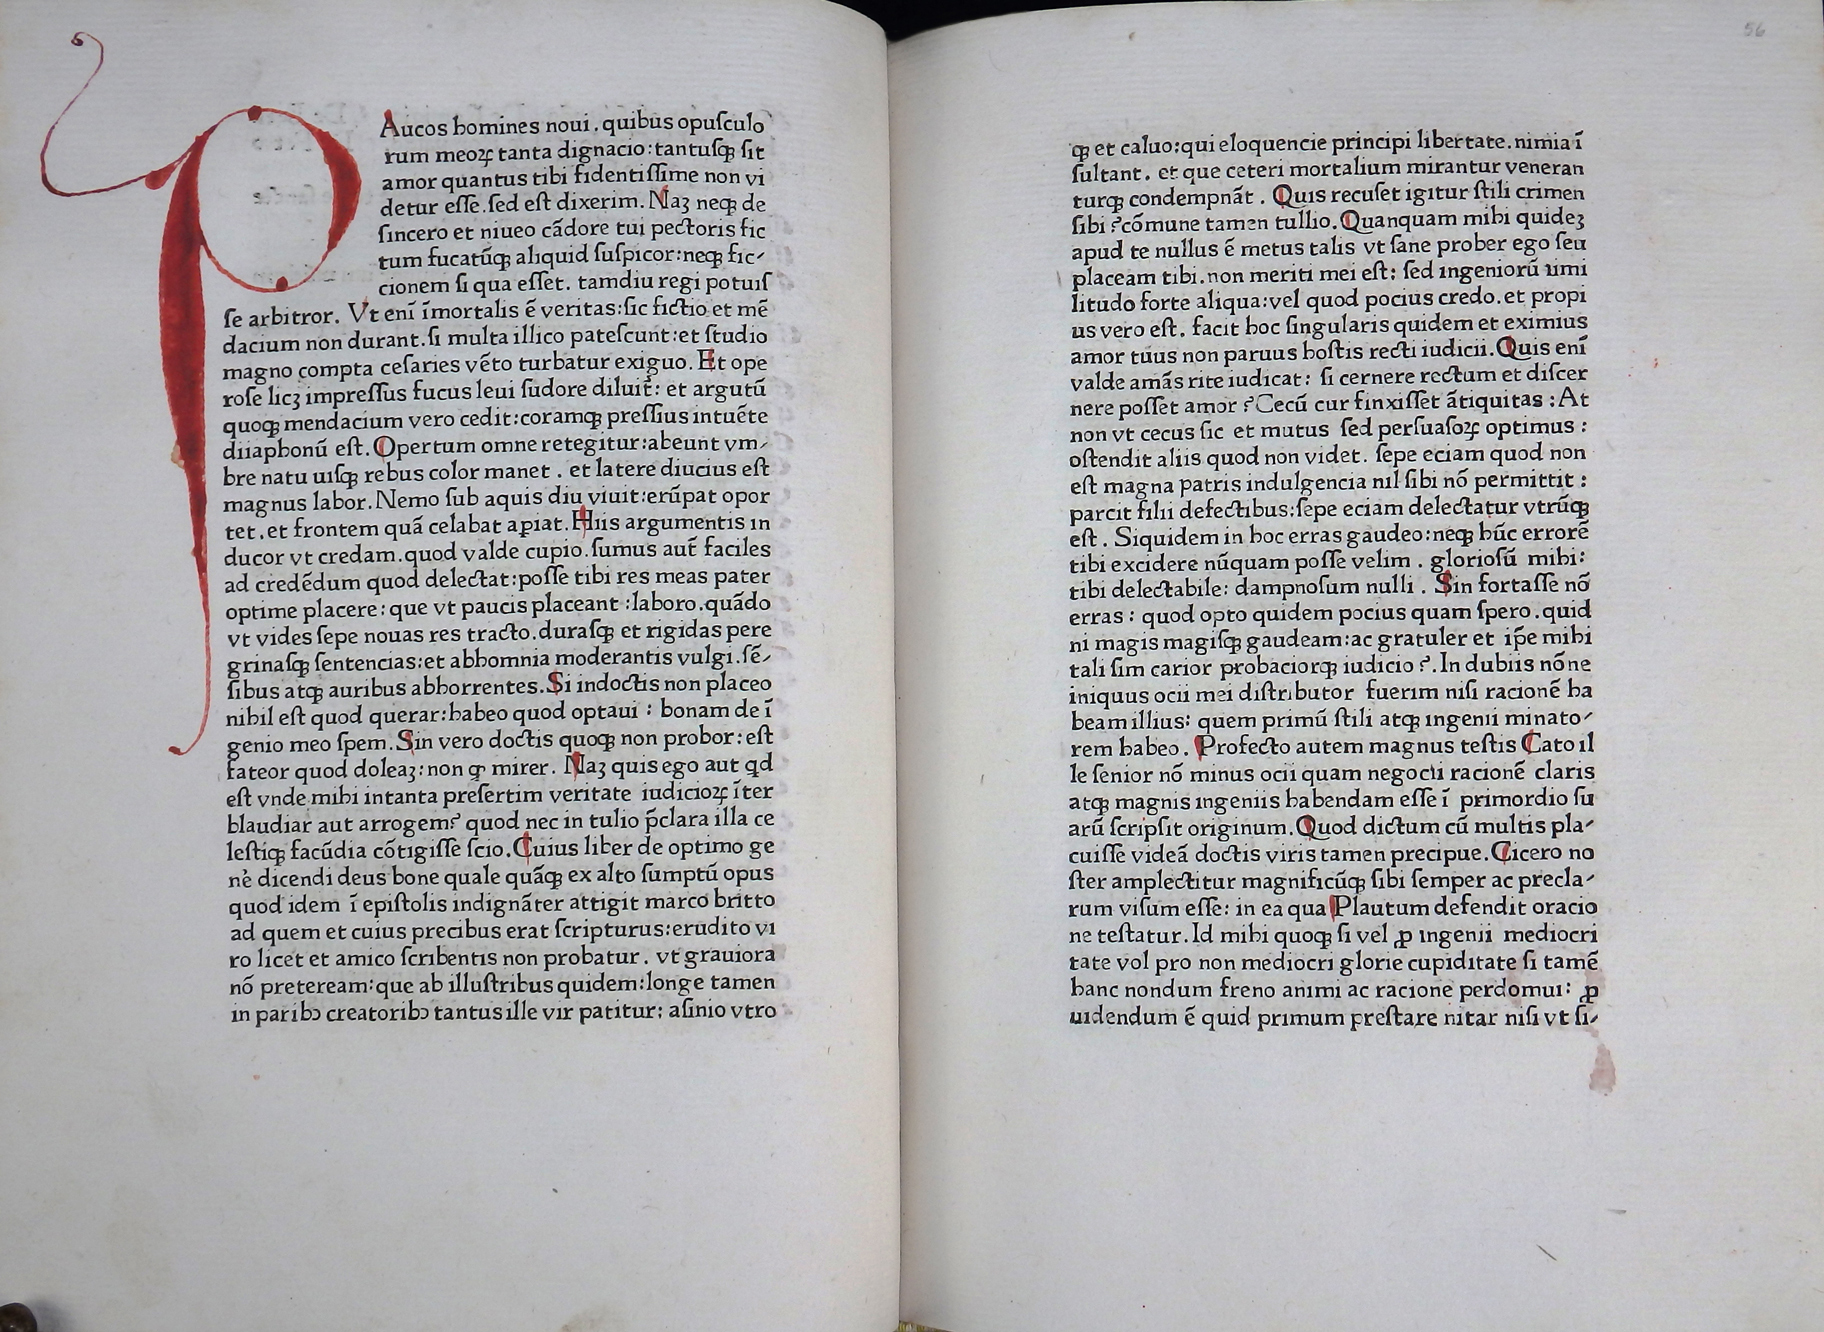 PAucos homines noui. quibus opuſculo
rum meoꝝ tanta dignacio: tantuſqꝫ ſit
amor quantus tibi fidentiſſime non vi
detur eſſe. ſed eſt dixerim. Naꝫ neqꝫ de
ſincero et niueo cādore tui pectoris fic
tum fucatūqꝫ aliquid ſuſpicor: neqꝫ fic-
cionem ſi qua eſſet. tamdiu regi potuiſ
ſe arbitror. Vt enī īmortalis ē veritas: ſic fictio et mē
dacium non durant. ſi multa illico pateſcunt: et ſtudio
magno compta ceſaries vēto turbatur exiguo. Et ope
roſe licꝫ impreſſus fucus leui ſudore diluit᷑: et argutū
quoqꝫ mendacium vero cedit: coramqꝫ preſſius intuēte
diiaphonū eſt. Opertum omne retegitur: abeunt vm-
bre natu uiſqꝫ rebus color manet. et latere diucius eſt
magnus labor. Nemo ſub aquis diu viuit: erūpat opor
tet. et frontem quā celabat aꝑiat. Hiis argumentis in
ducor vt credam. quod valde cupio. ſumus aut̄ faciles
ad credēdum quod delectat: poſſe tibi res meas pater
optime placere: que vt paucis placeant: laboro. quādo
vt vides ſepe nouas res tracto. duraſqꝫ et rigidas pere
grinaſqꝫ ſentencias: et abhomnia moderantis vulgi. ſē-
ſibus atqꝫ auribus abhorrentes. Si indoctis non placeo
nihil eſt quod querar: habeo quod optaui: bonam de ī
genio meo ſpem. Sin vero doctis quoqꝫ non probor: eſt
fateor quod doleaꝫ: non ꝙ mirer. Naꝫ quis ego aut qd
eſt vnde mihi intanta preſertim veritate iudicioꝝ īter
blaudiar aut arrogem? quod nec in tulio p̄clara illa ce
leſtiqꝫ facūdia cōtigiſſe ſcio. Cuius liber de optimo ge
nē dicendi deus bone quale quāqꝫ ex alto ſumptū opus
quod idem ī epiſtolis indignāter attigit marco britto
ad quem et cuius precibus erat ſcripturus: erudito vi
ro licet et amico ſcribentis non probatur. vt grauiora
nō preteream: que ab illuſtribus quidem: longe tamen
in paribꝯ creatoribꝯ tantus ille vir patitur: aſinio vtro
56
qꝫ et caluo: qui eloquencie principi libertate. nimia ī
ſultant. et que ceteri mortalium mirantur veneran
turqꝫ condempnāt. Quis recuſet igitur ſtili crimen
ſibi? cōmune tamen tullio. Quanquam mihi quideꝫ
apud te nullus ē metus talis vt ſane prober ego ſeu
placeam tibi. non meriti mei eſt: ſed ingeniorū umi
litudo forte aliqua: vel quod pocius credo. et propi
us vero eſt. facit hoc ſingularis quidem et eximius
amor tuus non paruus hoſtis recti iudicii. Quis enī
valde amās rite iudicat: ſi cernere rectum et diſcer
nere poſſet amor? Cecū cur finxiſſet ātiquitas: At
non vt cecus ſic et mutus ſed perſuaſoꝝ optimus:
oſtendit aliis quod non videt. ſepe eciam quod non
eſt magna patris indulgencia nil ſibi nō permittit:
parcit filii defectibus: ſepe eciam delectatur vtrūqꝫ
eſt. Siquidem in hoc erras gaudeo: neqꝫ hūc errorē
tibi excidere nūquam poſſe velim. glorioſū mihi:
tibi delectabile: dampnoſum nulli. Sin fortaſſe nō
erras: quod opto quidem pocius quam ſpero. quid
ni magis magiſqꝫ gaudeam: ac gratuler et ip̄e mihi
tali ſim carior probaciorqꝫ iudicio?. In dubiis nōne
iniquus ocii mei diſtributor fuerim niſi racionē ha
beam illius: quem primū ſtili atqꝫ ingenii minato-
rem habeo. Profecto autem magnus teſtis Cato il
le ſenior nō minus ocii quam negocii racionē claris
atqꝫ magnis ingeniis habendam eſſe ī primordio ſu
arū ſcripſit originum. Quod dictum cū multis pla-
cuiſſe videā doctis viris tamen precipue. Cicero no
ſter amplectitur magnificūqꝫ ſibi ſemper ac precla-
rum viſum eſſe: in ea qua Plautum defendit oracio
ne teſtatur. Id mihi quoqꝫ ſi vel ꝓ ingenii mediocri
tate vol pro non mediocri glorie cupiditate ſi tamē
hanc nondum freno animi ac racione perdomui: ꝓ
uidendum ē quid primum preſtare nitar niſi vt ſi-